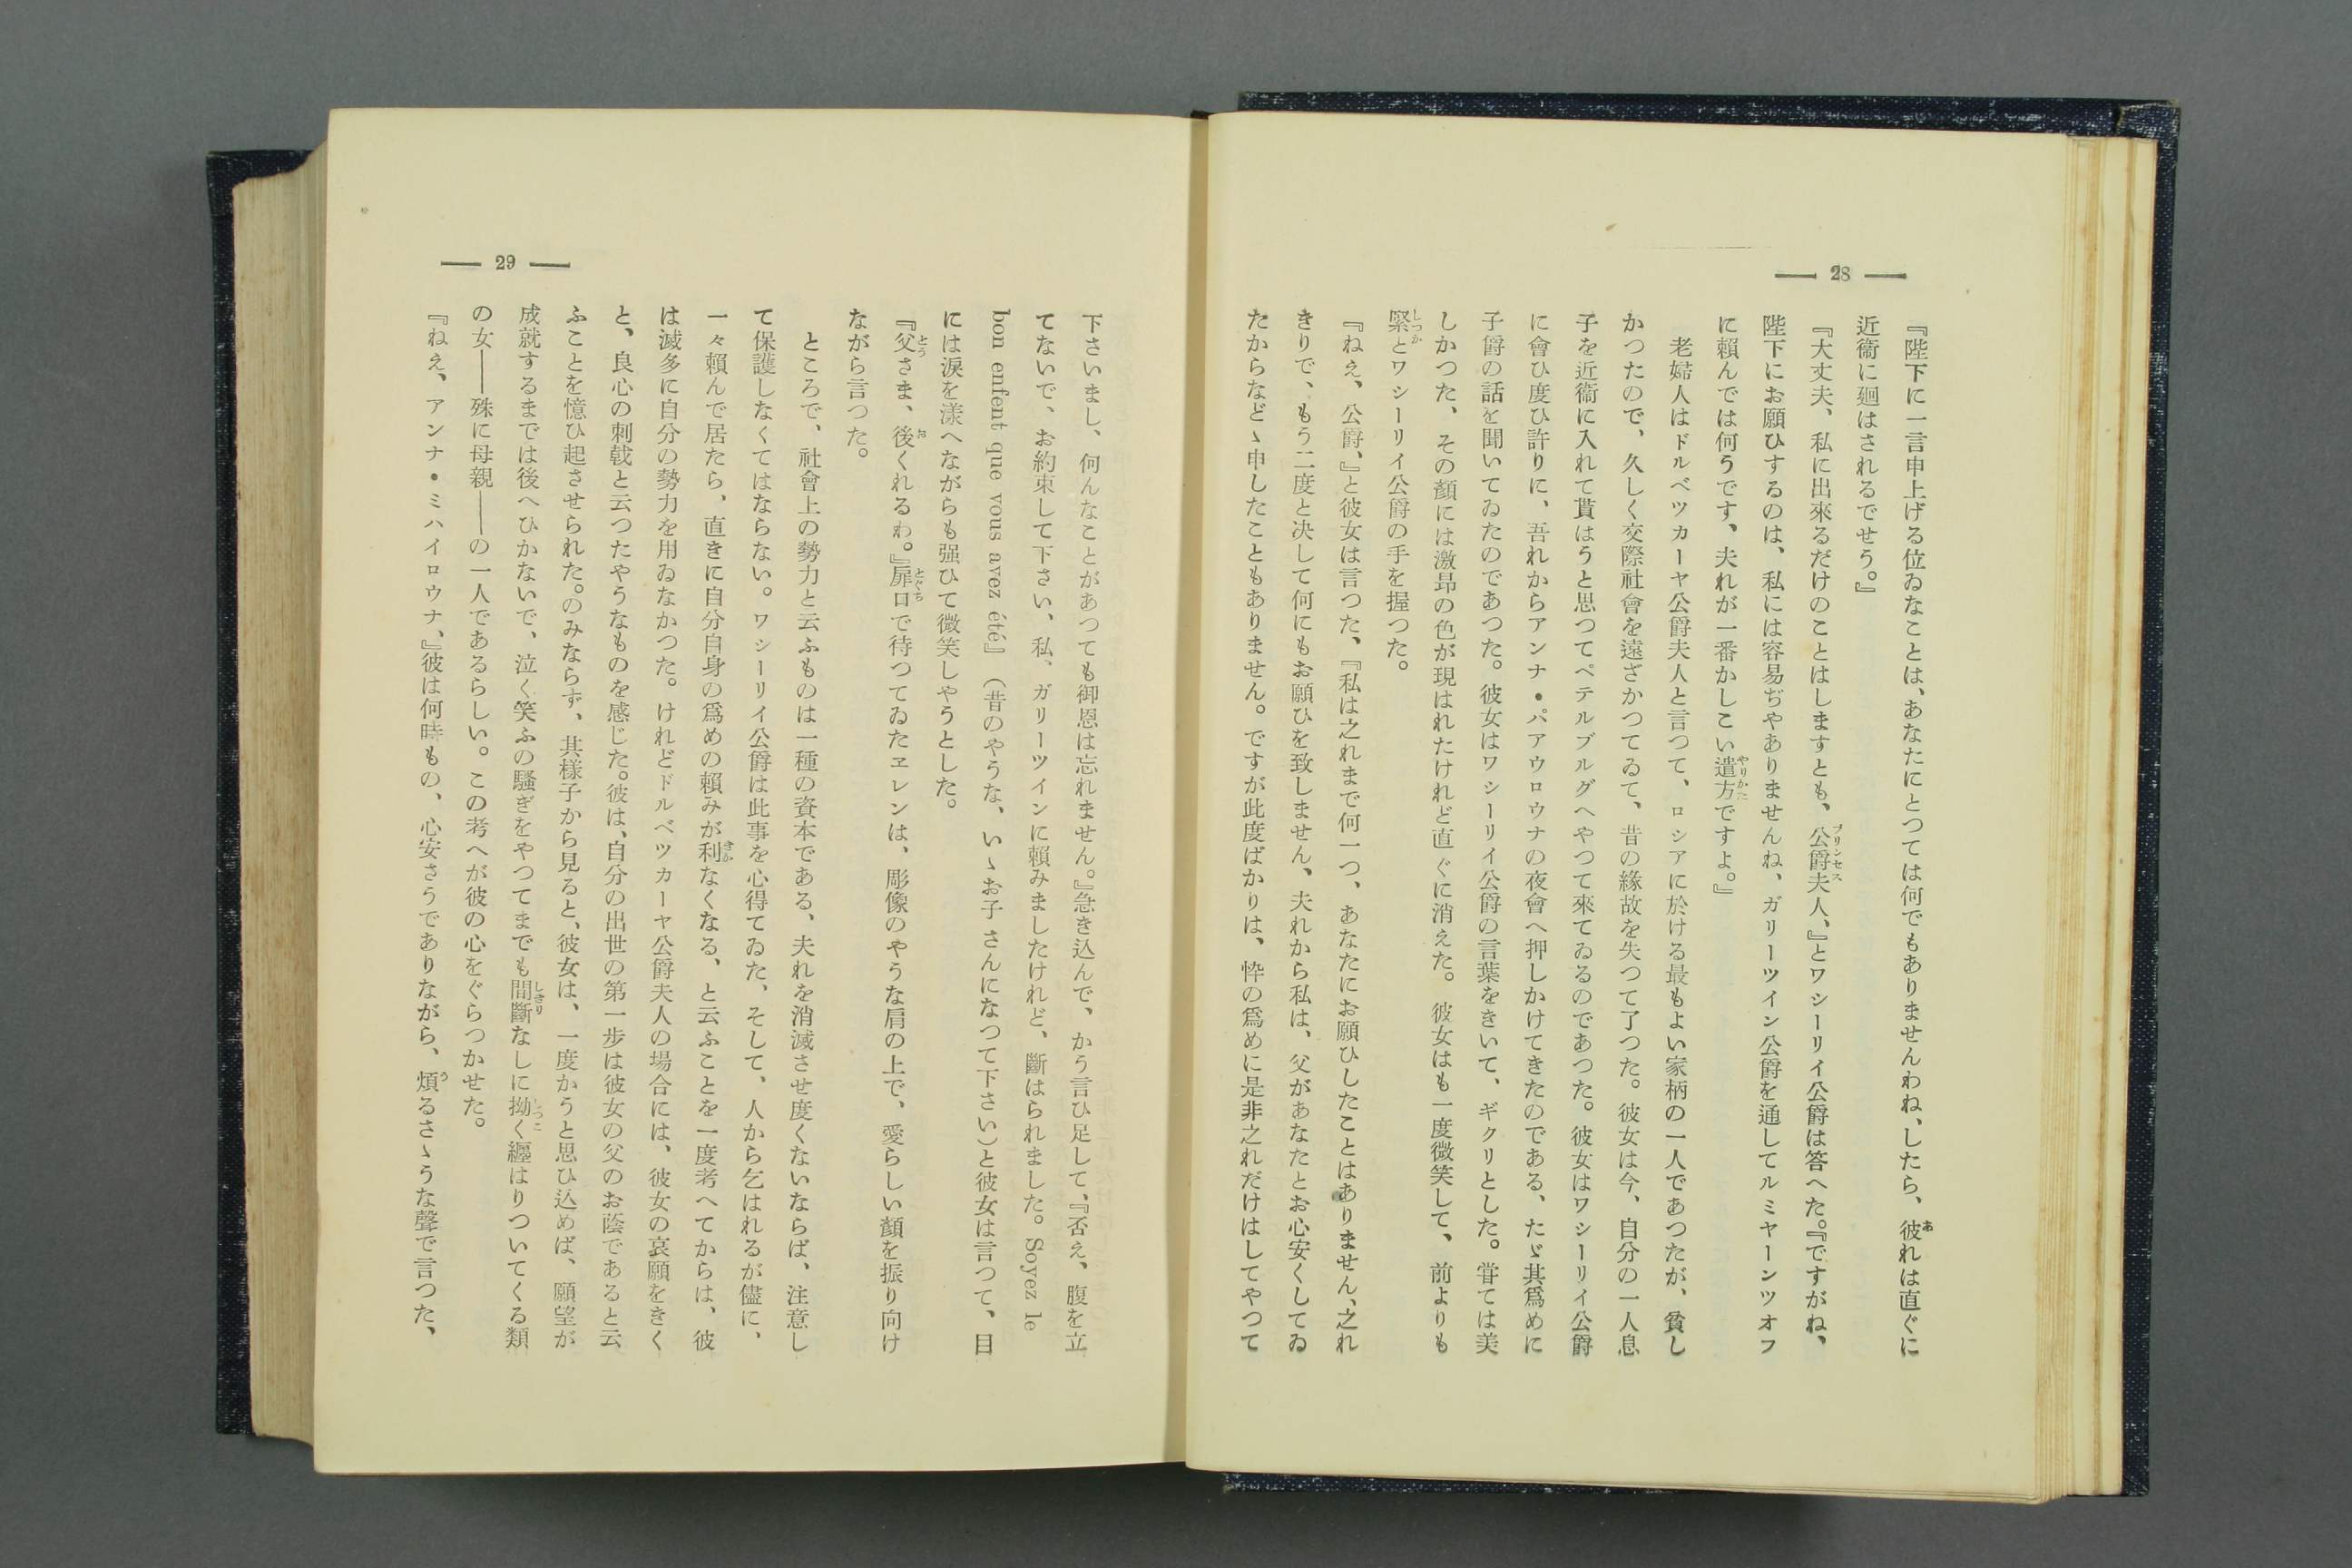 — 28 —
『陛下に一言申上げる位ゐなことは、あなたにとつては何でもありませんわね、したら、彼れは直ぐに
近衞に廻はされるでせう。』
『大丈夫、私に出來るだけのことはしますとも、公爵夫人、』とワシーリイ公爵は答へた。『ですがね、
陛下にお願ひするのは、私には容易ぢやありませんね、ガリーツイン公爵を通してルミヤーンツオフ
に賴んでは何うです、夫れが一番かしこい遣方ですよ。』
老婦人はドルベツカーヤ公爵夫人と言つて、ロシアに於ける最もよい家柄の一人であつたが、貧し
かつたので、久しく交際社會を遠ざかつてゐて、昔の緣故を失つて了つた。彼女は今、自分の一人息
子を近衞に入れて貰はうと思つてペテルブルグへやつて來てゐるのであつた。彼女はワシーリイ公爵
に會ひ度ひ許りに、吾れからアンナ・パアウロウナの夜會へ押しかけてきたのである、たゞ其爲めに
子爵の話を聞いてゐたのであつた。彼女はワシーリイ公爵の言葉をきいて、ギクリとした。甞ては美
しかつた、その顏には激昻の色が現はれたけれど直ぐに消えた。彼女はも一度微笑して、前よりも
緊とワシーリイ公爵の手を握つた。
『ねえ、公爵、』と彼女は言つた、『私は之れまで何一つ、あなたにお願ひしたことはありません、之れ
きりで、もう二度と決して何にもお願ひを致しません、夫れから私は、父があなたとお心安くしてゐ
たからなどゝ申したこともありません。ですが此度ばかりは、忰の爲めに是非之れだけはしてやつて
— 29 —
下さいまし、何んなことがあつても御恩は忘れません。』急き込んで、かう言ひ足して、『否え、腹を立
てないで、お約束して下さい、私、ガリーツインに賴みましたけれど、斷はられました。Soyez le
bon enfent que vous avez été』（昔のやうな、いゝお子さんになつて下さい）と彼女は言つて、目
には淚を漾へながらも强ひて微笑しやうとした。
『父さま、後くれるわ。』扉口で待つてゐたエレンは、彫像のやうな肩の上で、愛らしい顏を振り向け
ながら言つた。
ところで、社會上の勢力と云ふものは一種の資本である、夫れを消滅させ度くないならば、注意し
て保護しなくてはならない。ワシーリイ公爵は此事を心得てゐた、そして、人から乞はれるが儘に、
一々賴んで居たら、直きに自分自身の爲めの賴みが利なくなる、と云ふことを一度考へてからは、彼
は滅多に自分の勢力を用ゐなかつた。けれどドルベツカーヤ公爵夫人の場合には、彼女の哀願をきく
と、良心の刺戟と云つたやうなものを感じた。彼は、自分の出世の第一步は彼女の父のお蔭であると云
ふことを憶ひ起させられた。のみならず、其樣子から見ると、彼女は、一度かうと思ひ込めば、願望が
成就するまでは後へひかないで、泣く笑ふの騷ぎをやつてまでも間斷なしに拗く纒はりついてくる類
の女――殊に母親――の一人であるらしい。この考へが彼の心をぐらつかせた。
『ねえ、アンナ・ミハイロウナ、』彼は何時もの、心安さうでありながら、煩るさゝうな聲で言つた、